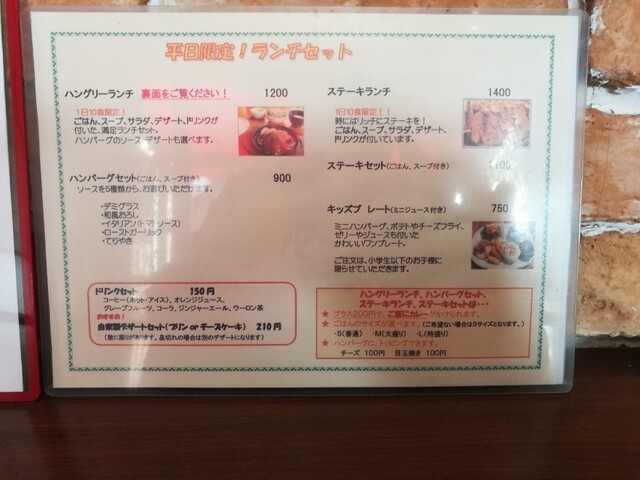 平日限定！ランチセット
ハングリーランチ 裏面をご覧ください！ 1200
1日10食限定！
ごはん、スープ、サラダ、デザート、ドリンクが
付いた、満足ランチセット。
ハンバーグのソース、デザートも選べます。
ハンバーグセット(ごはん、スープ付き) 900
ソースを5種類から、お選びいただけます。
・デミグラス
・和風おろし
・イタリアン(トマトソース)
・ローストガーリック
・てりやき
ドリンクセット 150円
コーヒー(ホット・アイス)、オレンジジュース、
グレープフルーツ、コーラ、ジンジャーエール、ウーロン茶
おすすめ！
自家製デザートセット(プリン or チーズケーキ) 210円
(数に限りがあります。品切れの場合は別のデザートになります)
ステーキランチ 1400
1日10食限定！！
時にはリッチにステーキを！
ごはん、スープ、サラダ、デザート、
ドリンクが付いています。
ステーキセット(ごはん、スープ付き)
キッズプレート(ミニジュース付き) 750
ミニハンバーグ、ポテトやチーズフライ、
ゼリーやジュースも付いた
かわいいワンプレート。
ご注文は、小学生以下のお子様に
限らせていただきます。
ハングリーランチ、ハンバーグセット、
ステーキランチ、ステーキセットは…
★ プラス200円で、ご飯にカレーがかけられます。
★ ごはんのサイズが選べます。(ご希望ない場合はSサイズとなります。)
・S(普通) ・M(大盛り) ・L(特盛り)
★ ハンバーグに、トッピングできます。
チーズ 100円 目玉焼き 100円